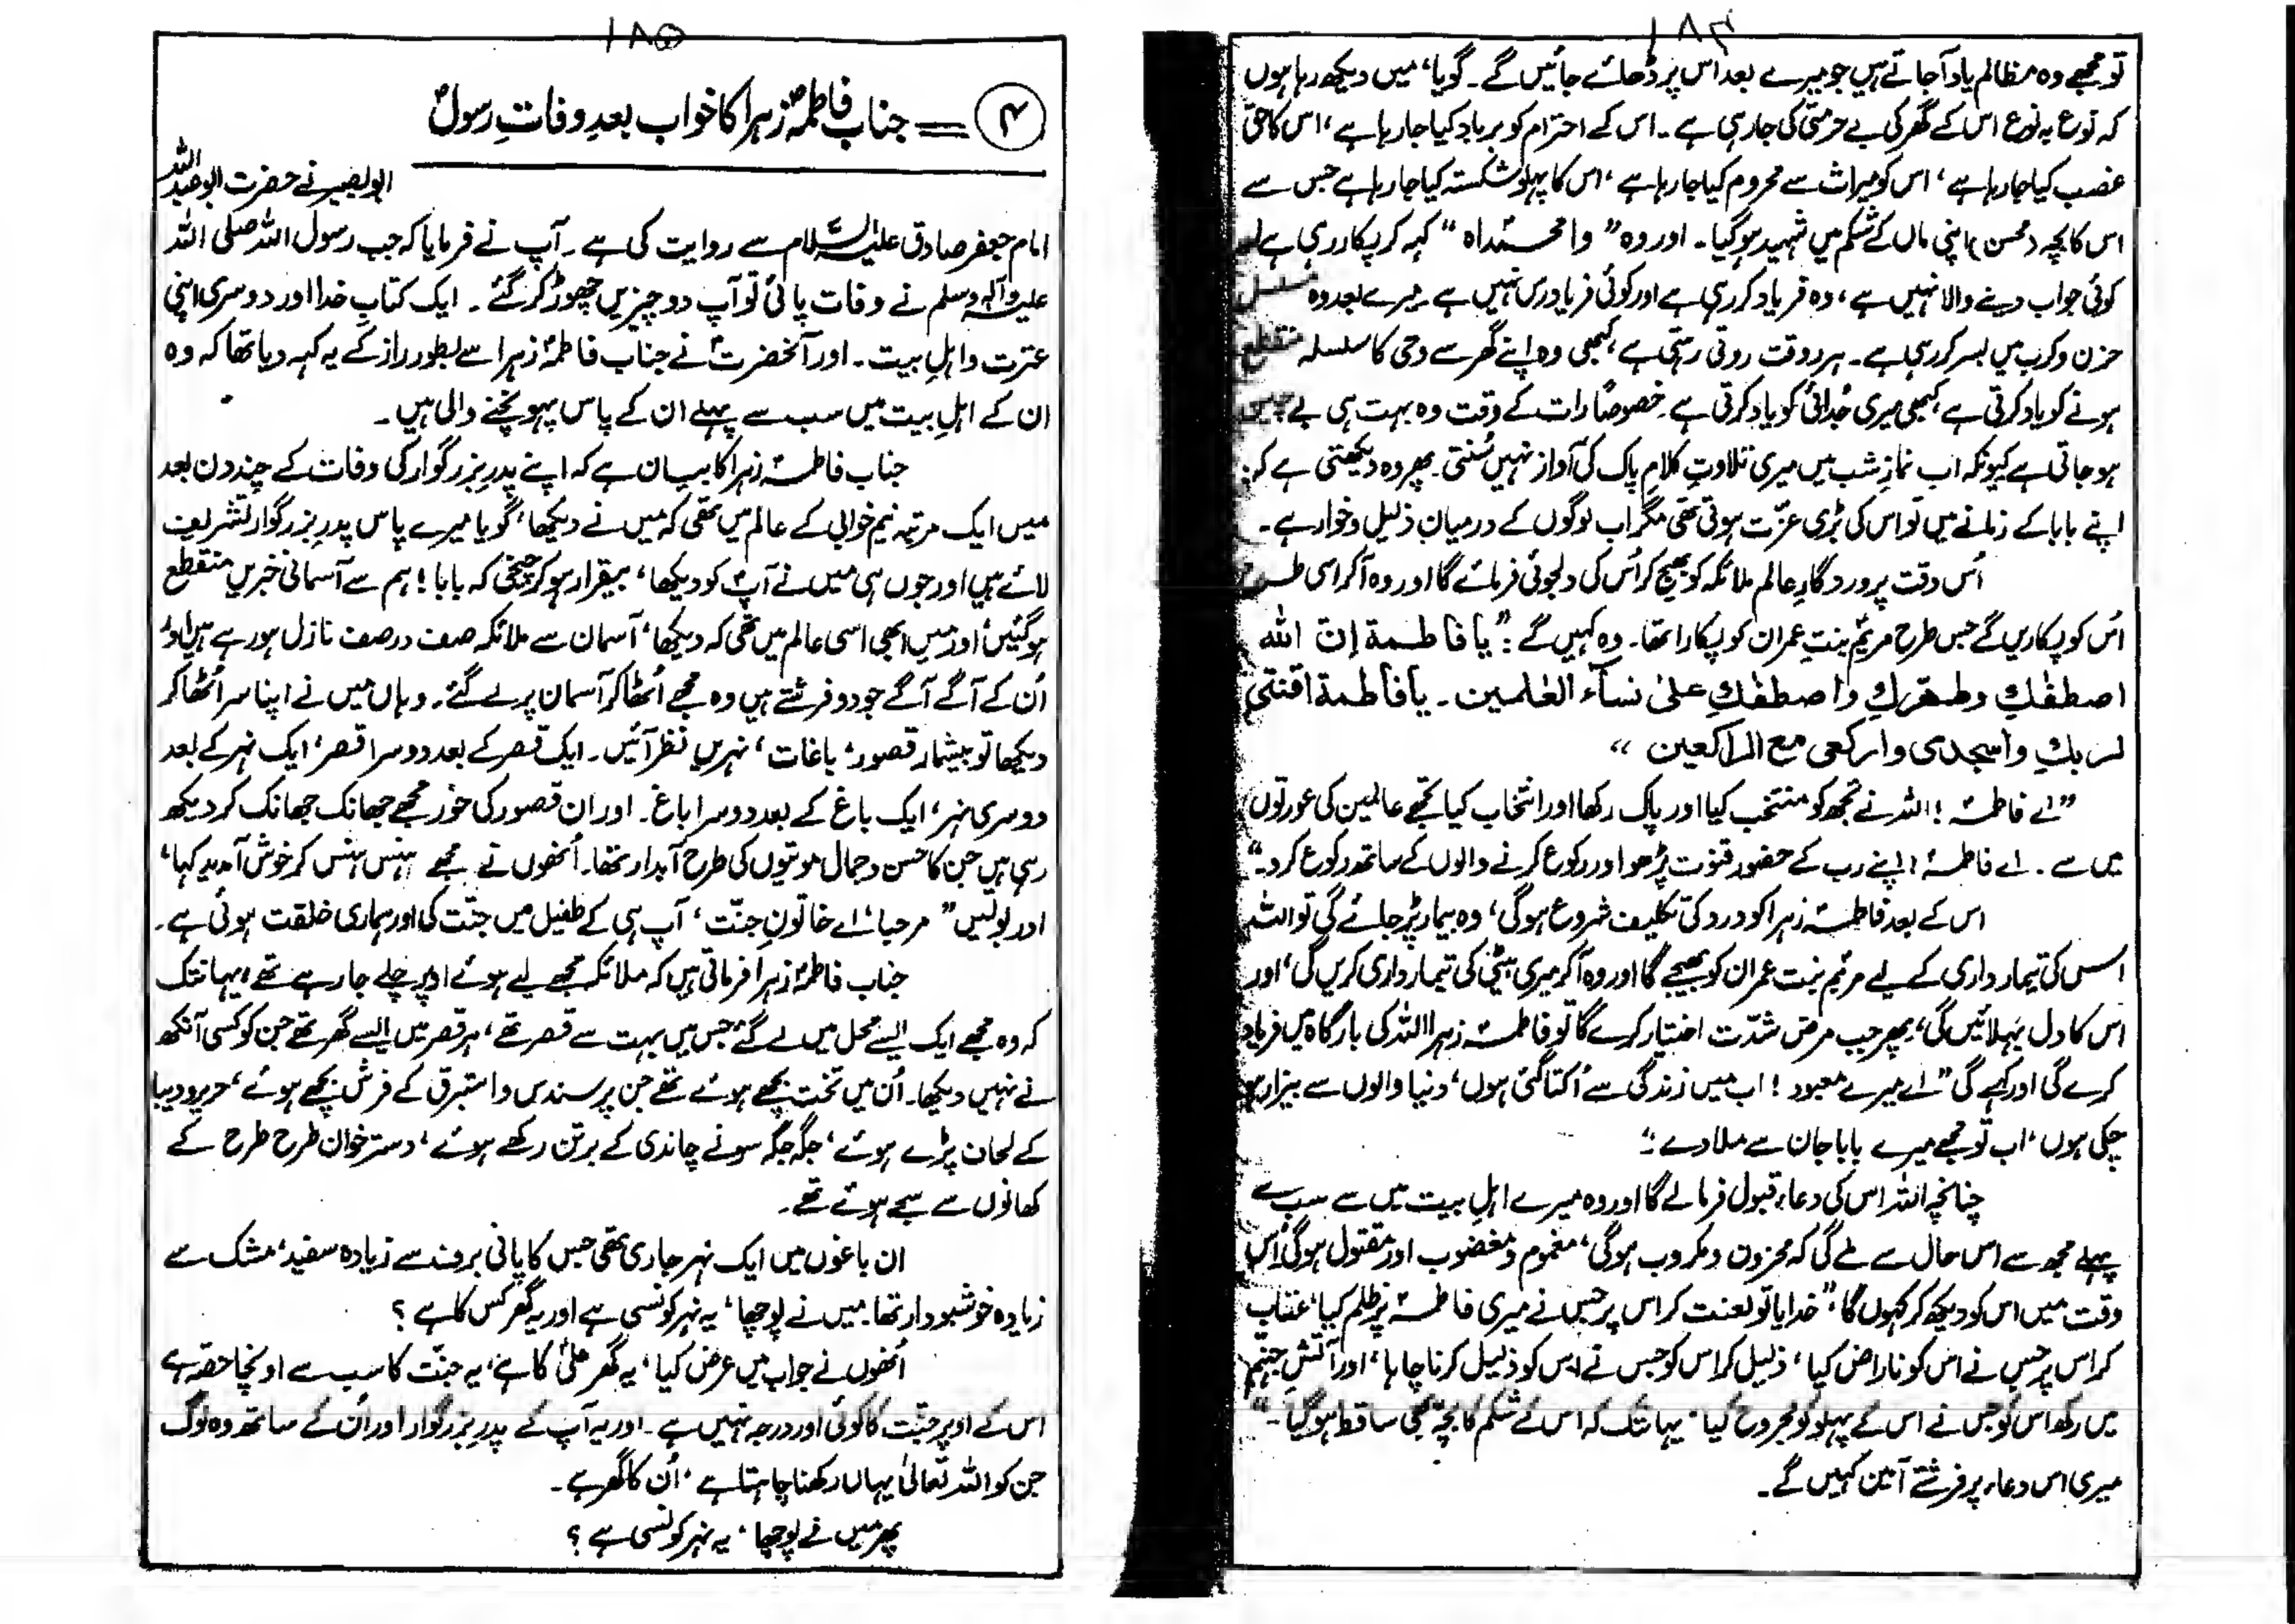 ۱۸۴
تو مجھے وہ مظالم یاد آجاتے ہیں جو میرے بعد اس پر ڈھائے جائیں گے۔ گویا، میں دیکھ رہا ہوں
کہ نوع بہ نوع اس کے گھر کی بے حرمتی کی جا رہی ہے۔ اس کے احترام کو برباد کیا جا رہا ہے، اس کا حق
غصب کیا جا رہا ہے، اس کو میراث سے محروم کیا جا رہا ہے، اس کا پہلو شکستہ کیا جا رہا ہے جس سے
اس کا بچہ (محسن) اپنی ماں کے شکم میں شہید ہو گیا۔ اور وہ "وا محمّداہ" کہہ کر پکار رہی ہے
کوئی جواب دینے والا نہیں ہے، وہ فریاد کر رہی ہے اور کوئی فریادرس نہیں ہے۔ میرے بعد وہ مسلسل
حزن و کرب میں بسر کر رہی ہے۔ ہر وقت روتی رہتی ہے، کبھی وہ اپنے گھر سے وحی کا سلسلہ منقطع
ہونے کو یاد کرتی ہے، کبھی میری جُدائی کو یاد کرتی ہے۔ خصوصًا رات کے وقت وہ بہت ہی بے چین
ہو جاتی ہے کیونکہ اب نمازِ شب میں میری تلاوتِ کلامِ پاک کی آواز نہیں سُنتی۔ پھر وہ دیکھتی ہے کہ
اپنے بابا کے زمانے میں تو اس کی بڑی عزّت ہوتی تھی مگر اب لوگوں کے درمیان ذلیل و خوار ہے۔
اُس وقت پروردگارِ عالم ملائکہ کو بھیج کر اُس کی دلجوئی فرمائے گا اور وہ آکر اسی طرح
اُس کو پکاریں گے جس طرح مریمؑ بنتِ عمران کو پکارا تھا۔ وہ کہیں گے: "یا فاطمة إنّ الله
اصطفٰكِ وطهّركِ واصطفٰكِ علىٰ نسآء العٰلمين۔ يا فاطمة اقنتى
لربكِ واسجدى واركعى مع الراكعين"
"اے فاطمہؑ! اللہ نے تجھ کو منتخب کیا اور پاک رکھا اور انتخاب کیا تجھے عالمین کی عورتوں
میں سے۔ اے فاطمہؑ! اپنے رب کے حضور قنوت پڑھو اور رکوع کرنے والوں کے ساتھ رکوع کرو۔"
اس کے بعد فاطمہؑ زہرا کو درد کی تکلیف شروع ہوگی، وہ بیمار پڑ جائے گی تو اللہ
اس کی تیمارداری کے لیے مریمؑ بنت عمران کو بھیجے گا اور وہ آکر میری بیٹی کی تیمارداری کریں گی، اور
اس کا دل بہلائیں گی، پھر جب مرض شدّت اختیار کرے گا تو فاطمہؑ زہرا اللہ کی بارگاہ میں فریاد
کرے گی اور کہے گی "اے میرے معبود! اب میں زندگی سے اُکتا گئی ہوں، دنیا والوں سے بیزار ہو
چکی ہوں، اب تو مجھے میرے بابا جان سے ملا دے۔"
چنانچہ اللہ اس کی دعاء قبول فرمالے گا اور وہ میرے اہلِ بیت میں سے سب سے
پہلے مجھ سے اس حال سے ملے گی کہ محزون و مکروب ہوگی، مغموم و مغضوب اور مقتول ہوگی اُس
وقت میں اس کو دیکھ کر کہوں گا، "خدایا تو لعنت کر اس پر جس نے میری فاطمہؑ پر ظلم کیا، عقاب
کر اس پر جس نے اس کو ناراض کیا، ذلیل کر اس کو جس نے اس کو ذلیل کرنا چاہا، اور آتشِ جہنم
میں رکھ اس کو جس نے اس کے پہلو کو مجروح کیا، یہانتک کہ اس کے شکم کا بچہ بھی ساقط ہو گیا۔"
میری اس دعاء پر فرشتے آمین کہیں گے۔
۱۸۵
۴ = جناب فاطمہؑ زہرا کا خواب بعدِ وفاتِ رسولؐ
ابو بصیر نے حضرت ابو عبداللہ
امام جعفر صادق علیہ السّلام سے روایت کی ہے۔ آپ نے فرمایا کہ جب رسول اللہ صلی اللہ
علیہ وآلہ وسلم نے وفات پائی تو آپ دو چیزیں چھوڑ کر گئے۔ ایک کتابِ خدا اور دوسری اپنی
عترت و اہلِ بیت۔ اور آنحضرتؐ نے جناب فاطمہؑ زہرا سے بطور راز کے یہ کہہ دیا تھا کہ وہ
ان کے اہلِ بیت میں سب سے پہلے ان کے پاس پہونچنے والی ہیں۔
جناب فاطمہؑ زہرا کا بیان ہے کہ اپنے پدرِ بزرگوار کی وفات کے چند دن بعد
میں ایک مرتبہ نیم خوابی کے عالم میں تھی کہ میں نے دیکھا، گویا میرے پاس پدرِ بزرگوار تشریف
لائے ہیں اور جوں ہی میں نے آپؐ کو دیکھا، بیقرار ہو کر چیخی کہ بابا! ہم سے آسمانی خبریں منقطع
ہو گئیں، اور میں ابھی اسی عالم میں تھی کہ دیکھا، آسمان سے ملائکہ صف در صف نازل ہو رہے ہیں اور
اُن کے آگے آگے جو دو فرشتے ہیں وہ مجھے اُٹھا کر آسمان پر لے گئے۔ وہاں میں نے اپنا سر اُٹھا کر
دیکھا تو بیشمار قصور، باغات، نہریں نظر آئیں۔ ایک قصر کے بعد دوسرا قصر، ایک نہر کے بعد
دوسری نہر، ایک باغ کے بعد دوسرا باغ۔ اور ان قصور کی حور مجھے جھانک جھانک کر دیکھ
رہی ہیں جن کا حسن و جمال موتیوں کی طرح آبدار تھا۔ اُنھوں نے مجھے ہنس ہنس کر خوش آمدید کہا،
اور بولیں "مرحبا، اے خاتونِ جنّت، آپ ہی کے طفیل میں جنّت کی اور ہماری خلقت ہوئی ہے۔
جناب فاطمہؑ زہرا فرماتی ہیں کہ ملائکہ مجھے لیے ہوئے اوپر چلے جا رہے تھے، یہانتک
کہ وہ مجھے ایک ایسے محل میں لے گئے جس میں بہت سے قصر تھے، ہر قصر میں ایسے گھر تھے جن کو کسی آنکھ
نے نہیں دیکھا۔ اُن میں تخت بچھے ہوئے تھے جن پر سندس و استبرق کے فرش بچھے ہوئے، حریر و دیبا
کے لحاف پڑے ہوئے، جگہ جگہ سونے چاندی کے برتن رکھے ہوئے، دسترخوان طرح طرح کے
کھانوں سے سجے ہوئے تھے۔
ان باغوں میں ایک نہر جاری تھی جس کا پانی برف سے زیادہ سفید، مشک سے
زیادہ خوشبودار تھا۔ میں نے پوچھا، یہ نہر کونسی ہے اور یہ گھر کس کا ہے؟
اُنھوں نے جواب میں عرض کیا، یہ گھر علیؑ کا ہے، یہ جنّت کا سب سے اونچا حصّہ ہے
اس کے اوپر جنّت کا کوئی اور درجہ نہیں ہے۔ اور یہ آپ کے پدرِ بزرگوار اور اُن کے ساتھ وہ لوگ
جن کو اللہ تعالیٰ یہاں رکھنا چاہتا ہے، اُن کا گھر ہے۔
پھر میں نے پوچھا، یہ نہر کونسی ہے؟